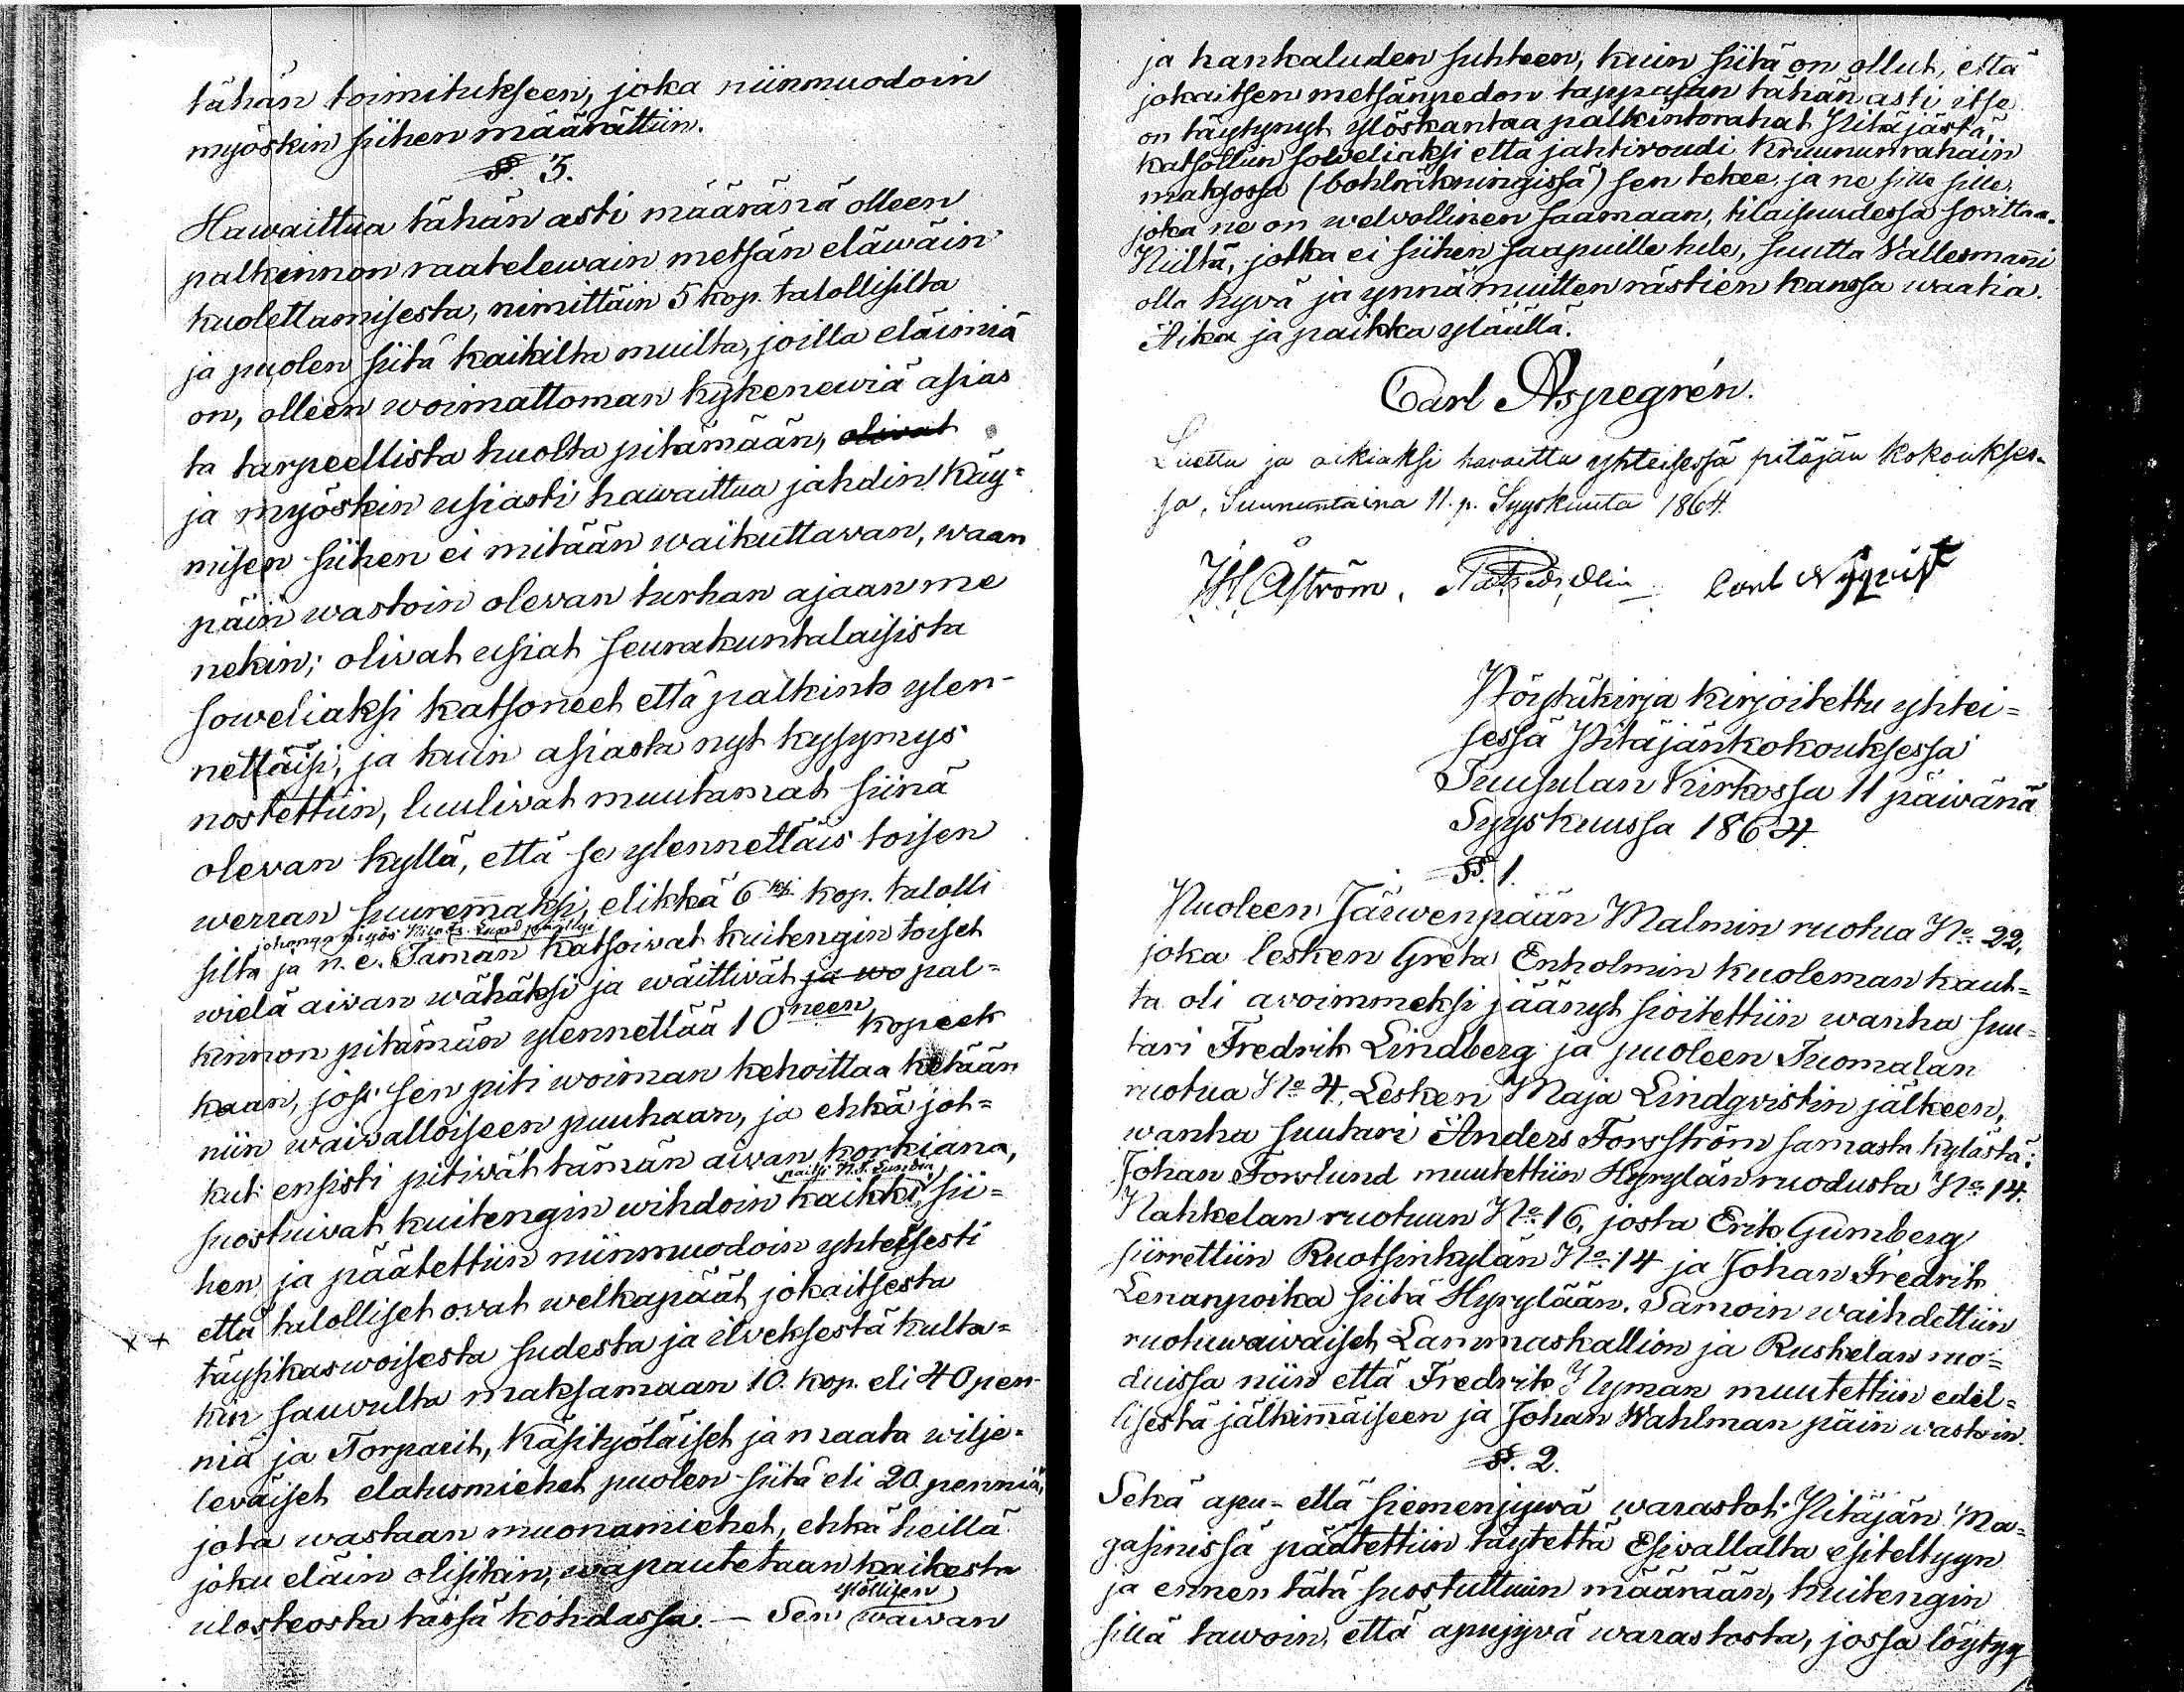 tähän toimitukseen, joka niinmuodoin
myöskin siihen määrättiin.
§. 3.
Hawaittua tähän asti määränä olleen
palkinnon raatelewain metsän eläwäin
kuolettamisesta, nimittäin 5 kop. talollisilta
ja puolen siitä kaikilta muilta, joilla eläimiä
on, olleen woimattoman kykenewiä asias
ta tarpeellista huolta pitämään, olivat
ja myöskin usiasti hawaittua jahdin käy=
misen siihen ei mitään waikuttavan, waan
päin wastoin olevan turhan ajaan me
nekin; olivat usiat seurakuntalaisista
soweliaksi katsoneet että palkinto ylen-
nettäisi, ja kuin asiasta nyt kysymys
nostettiin, luulivat muutamat siinä
olevan kyllä, että se ylennettäis toisen
werran suuremaksi, elikkä 6 ksi kop. talolli
johonga myös
silta ja n. e. Tämän katsoivat kuitengin toiset
wielä aivan wähäksi ja wäittivät ja wo pal=
kinnon pitämän ylennettää 10 neen kopeek
kaan, jos sen piti woiman kehoittaa ketään
niin waivalloiseen puuhaan, ja ehkä jot=
kut ensisti pitivät tämän aivan korkiana,
paitsi
suostuivat kuitengin wihdoin kaikki sii=
hen ja päätettiin niinmuodoin yhteisesti
että talolliset ovat welkapäät jokaitsesta
täysikaswoisesta sudesta ja ilveksestä kulta=
kin sauvulta maksamaan 10. kop. eli 40 pen
niä ja Torparit, käsityöläiset ja maata wilje=
leväiset elatusmiehet puolen siitä eli 20. penniä,
jota wastaan muonamiehet, ehkä heillä
joku eläin olisikin, wapautetaan kaikesta
ylöllisen
ulosteosta tässä kohdassa. — Sen waivan
ja hankaluden suhteen, kuin siitä on ollut, että
jokaitsen metsänpedon tappajan tähän asti itse
on täytynyt ylöskantaa palkintorahat Pitäjästä,
katsottiin soweliaksi että jahtivoudi Kruununrahain
maksossa (bohlräkningissä) sen tekee, ja ne sitte sille,
joka ne on welvollinen saamaan, tilaisuudessa sovittaa.
Niiltä, jotka ei siihen saapuille tule, suutta Wallesmanni
olla hyvä ja ynnä muitten rästien kanssa waatia.
Aika ja paikka ylläällä.
Carl Aspegrén.
Luettu ja oikiaksi havaittu yhteisessä pitäjän kokoukses-
sa, Sunnuntaina 11. p. Syyskuuta 1864.
Åström. Olin Carl Nyqvist
Pöytäkirja kirjoitettu yhtei=
sessä Pitäjänkokouksessa
Tuusulan Kirkossa 11 päiwänä
Syyskuussa 1864.
§. 1.
Puoleen Järwenpään Malmin ruotua No 22,
joka lesken Greta Enholmin kuoleman kaut=
ta oli avoimmeksi jäänyt sioitettiin wanha suu=
tari Fredrik Lindberg ja puoleen Tuomalan
ruotua No 4, Lesken Maja Lindqvistin jälkeen,
wanha suutari Anders Forsström samasta kylästä;
Johan Forslund muutettiin Hyrylän ruodusta No 14.
Nahkelan ruotuun No 16, josta Erik Gumberg
siirrettiin Ruotsinkylän No 14 ja Johan Fredrik
Lenanpoika siitä Hyrylään. Samoin waihdettiin
ruotuwaivaiset Lammaskallion ja Ruskelan ruo=
duissa niin että Fredrik Nyman muutettiin edel=
lisestä jälkimäiseen ja Johan Wahlman päin wastoin.
§. 2.
Sekä apu- että siemenjywä warastot Pitäjän Ma=
gasinissä päätettiin täytettä Esivallalta esiteltyyn
ja ennen tätä suostuttuin määrään, kuitengin
sillä tawoin, että apujyvä warastosta, jossa löytyy